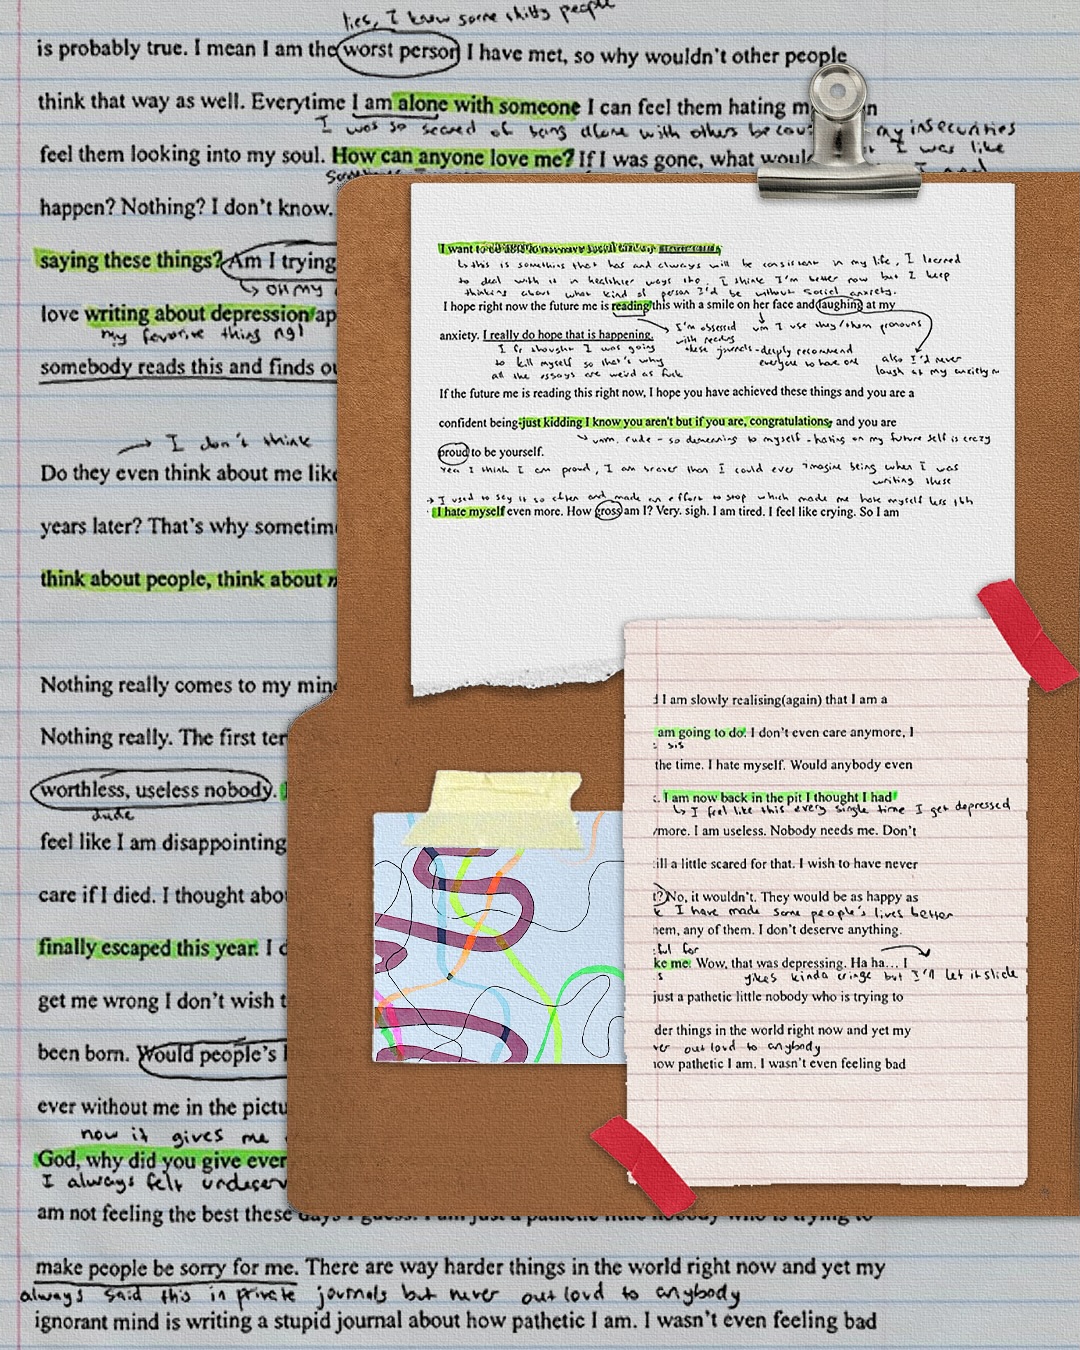 lies, I know some shitty people
is probably true. I mean I am the worst person I have met, so why wouldn't other people
think that way as well. Everytime I am alone with someone I can feel them hating m n
I was so scared of being alone with others becau my insecurities
feel them looking into my soul. How can anyone love me? If I was gone, what woul I was like
happen? Nothing? I don't know.
saying these things? Am I trying
↳ OH my
love writing about depression ap
my favorite thing ngl
somebody reads this and finds ou
→ I don't think
Do they even think about me like
years later? That's why sometim
think about people, think about m
Nothing really comes to my min
Nothing really. The first ter
worthless, useless nobody.
dude
feel like I am disappointing
care if I died. I thought abo
finally escaped this year. I d
get me wrong I don't wish t
been born. Would people's l
ever without me in the pictu
now it gives me
God, why did you give ever
I always felt undeserv
am not feeling the best these days I guess. I am just a pathetic little nobody who is trying to
make people be sorry for me. There are way harder things in the world right now and yet my
always said this in private journals but never out loud to anybody
ignorant mind is writing a stupid journal about how pathetic I am. I wasn't even feeling bad
I want to
↳ this is something that has and always will be consistent in my life, I learned
to deal with it in healthier ways tho, I think I'm better now but I keep
thinking about what kind of person I'd be without social anxiety.
I hope right now the future me is reading this with a smile on her face and laughing at my
I'm obsessed with reading these journals - deeply recommend everyone to have one
um I use they/them pronouns
anxiety. I really do hope that is happening.
I fr thought I was going
to kill myself so that's why
all the essays are weird as fuck
also I'd never
laugh at my anxiety
If the future me is reading this right now, I hope you have achieved these things and you are a
confident being-just kidding I know you aren't but if you are, congratulations, and you are
umm. rude - so demeaning to myself - hating on my future self is crazy
proud to be yourself.
Yea I think I am proud, I am braver than I could ever imagine being when I was
writing these
→ I used to say it so often and made an effort to stop which made me hate myself less tbh
I hate myself even more. How gross am I? Very. sigh. I am tired. I feel like crying. So I am
I am slowly realising(again) that I am a
am going to do. I don't even care anymore, I
sis
the time. I hate myself. Would anybody even
I am now back in the pit I thought I had
↳ I feel like this every single time I get depressed
more. I am useless. Nobody needs me. Don't
ill a little scared for that. I wish to have never
? No, it wouldn't. They would be as happy as
I have made some people's lives better
hem, any of them. I don't deserve anything.
ful for
ke me. Wow, that was depressing. Ha ha… I
yikes kinda cringe but I'll let it slide
just a pathetic little nobody who is trying to
der things in the world right now and yet my
ver out loud to anybody
how pathetic I am. I wasn't even feeling bad